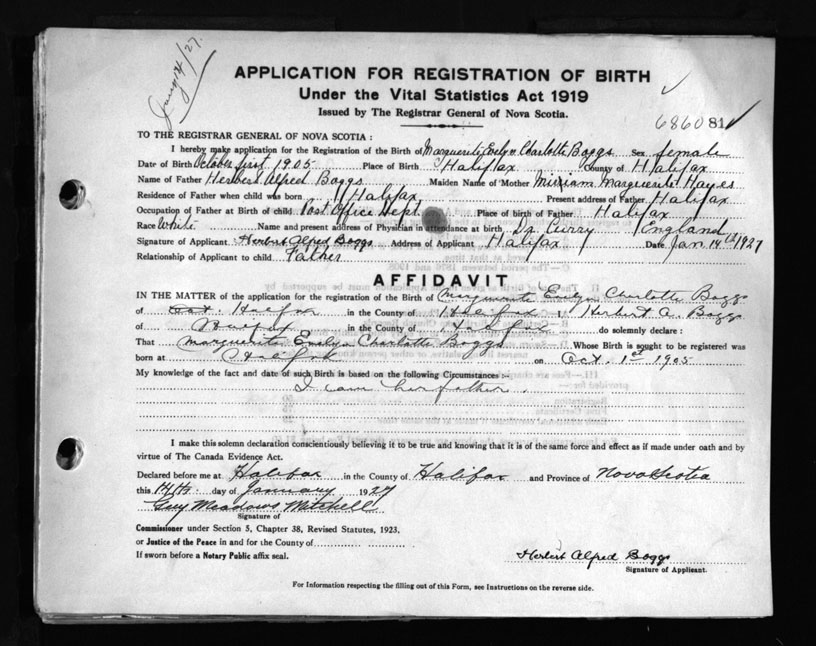 Jany 14/27.
APPLICATION FOR REGISTRATION OF BIRTH
Under the Vital Statistics Act 1919
Issued by The Registrar General of Nova Scotia.
686081
TO THE REGISTRAR GENERAL OF NOVA SCOTIA :
I hereby make application for the Registration of the Birth of Marguerite Evelyn Charlotte Boggs Sex female
Date of Birth October first 1905 Place of Birth Halifax County of Halifax
Name of Father Herbert Alfred Boggs Maiden Name of Mother Miriam Marguerite Hayes
Residence of Father when child was born Halifax Present address of Father Halifax
Occupation of Father at Birth of child Post Office Dept. Place of birth of Father Halifax
Race White Name and present address of Physician in attendance at birth Dr. Curry England
Signature of Applicant Herbert Alfred Boggs Address of Applicant Halifax Date Jan 14th 1927
Relationship of Applicant to child Father
AFFIDAVIT
IN THE MATTER of the application for the registration of the Birth of Marguerite Evelyn Charlotte Boggs
of Halifax in the County of Halifax I, Herbert A. Boggs
of Halifax in the County of Halifax do solemnly declare :
That Marguerite Evelyn Charlotte Boggs Whose Birth is sought to be registered was
born at Halifax on Oct. 1st 1905
My knowledge of the fact and date of such Birth is based on the following Circumstances :—
I am her father.
I make this solemn declaration conscientiously believing it to be true and knowing that it is of the same force and effect as if made under oath and by
virtue of The Canada Evidence Act.
Declared before me at Halifax in the County of Halifax and Province of Nova Scotia
this 14th day of January 1927
Guy Meadows Mitchell
Signature of
Commissioner under Section 5, Chapter 38, Revised Statutes, 1923.
or Justice of the Peace in and for the County of
If sworn before a Notary Public affix seal.
Herbert Alfred Boggs
Signature of Applicant.
For Information respecting the filling out of this Form, see Instructions on the reverse side.